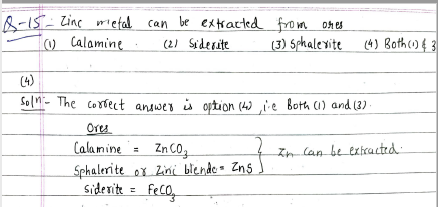 Q-15 - Zinc metal can be extracted from ores
(1) Calamine . (2) Siderite (3) Sphalerite (4) Both (1) & 3
(4)
Soln:- The correct answer is option (4), i.e Both (1) and (3).
Ores
Calamine = ZnCO3
Sphalerite or Zinc blende = ZnS } Zn can be extracted.
Siderite = FeCO3